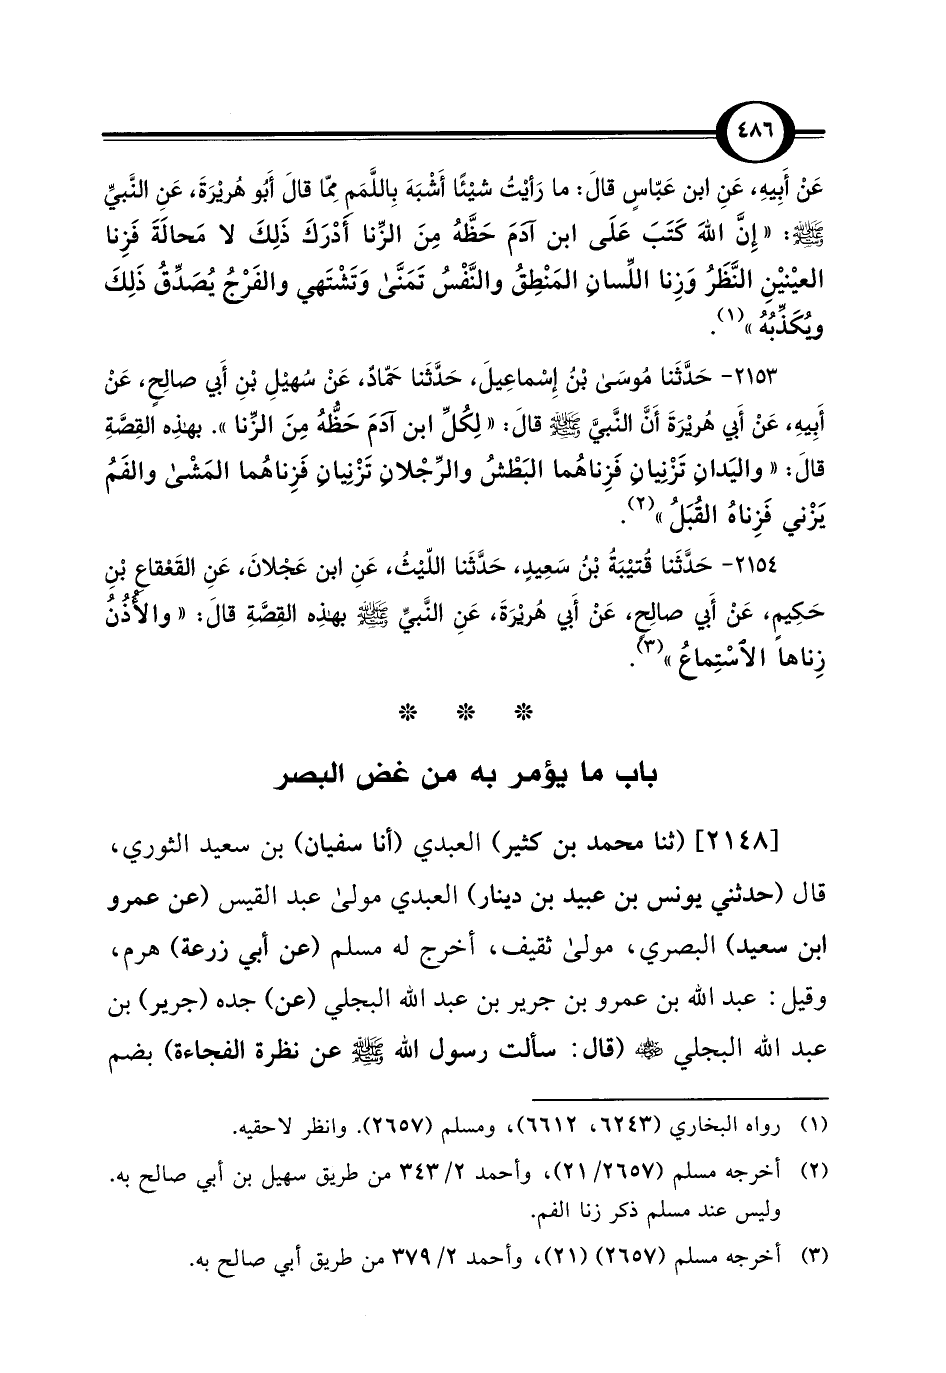 ٤٨٦
عَنْ أَبِيهِ، عَنِ ابن عَبّاسٍ قالَ: ما رَأَيْتُ شَيْئًا أَشْبَهَ بِاللَّمَمِ مِمّا قالَ أَبُو هُرَيْرَةَ، عَنِ النَّبِيِّ
ﷺ: « إِنَّ اللهَ كَتَبَ عَلَى ابن آدَمَ حَظَّهُ مِنَ الزِّنا أَدْرَكَ ذَلِكَ لا مَحالَةَ فَزِنا
العيْنَيْنِ النَّظَرُ وَزِنا اللِّسانِ المَنْطِقُ والنَّفْسُ تَمَنَّىٰ وَتَشْتَهي والفَرْجُ يُصَدِّقُ ذَلِكَ
ويُكَذِّبُهُ »(١).
٢١٥٣- حَدَّثَنا مُوسَىٰ بْنُ إِسْماعِيلَ، حَدَّثَنا حَمّادٌ، عَنْ سُهَيْلِ بْنِ أَبي صالِحٍ، عَنْ
أَبِيهِ، عَنْ أَبي هُرَيْرَةَ أَنَّ النَّبيَّ ﷺ قالَ: « لِكُلِّ ابن آدَمَ حَظُّهُ مِنَ الزِّنا ». بهٰذِه القِصَّةِ
قالَ: « واليَدانِ تَزْنِيانِ فَزِناهُما البَطْشُ والرِّجْلانِ تَزْنِيانِ فَزِناهُما المَشْىٰ والفَمُ
يَزْني فَزِناهُ القُبَلُ »(٢).
٢١٥٤- حَدَّثَنا قُتَيْبَةُ بْنُ سَعِيدٍ، حَدَّثَنا اللَّيْثُ، عَنِ ابن عَجْلانَ، عَنِ القَعْقاعِ بْنِ
حَكِيمٍ، عَنْ أَبي صالِحٍ، عَنْ أَبي هُرَيْرَةَ، عَنِ النَّبيِّ ﷺ بهٰذِه القِصَّةِ قالَ: « والأُذُنُ
زِناها الاسْتِماعُ »(٣).
* * *
باب ما يؤمر به من غض البصر
[٢١٤٨] (ثنا محمد بن كثير) العبدي (أنا سفيان) بن سعيد الثوري،
قال (حدثني يونس بن عبيد بن دينار) العبدي مولىٰ عبد القيس (عن عمرو
ابن سعيد) البصري، مولىٰ ثقيف، أخرج له مسلم (عن أبي زرعة) هرم،
وقيل: عبد الله بن عمرو بن جرير بن عبد الله البجلي (عن) جده (جرير) بن
عبد الله البجلي ﷺ (قال: سألت رسول الله ﷺ عن نظرة الفجاءة) بضم
(١) رواه البخاري (٦٢٤٣، ٦٦١٢)، ومسلم (٢٦٥٧). وانظر لاحقيه.
(٢) أخرجه مسلم (٢٦٥٧/ ٢١)، وأحمد ٢/ ٣٤٣ من طريق سهيل بن أبي صالح به.
وليس عند مسلم ذكر زنا الفم.
(٣) أخرجه مسلم (٢٦٥٧) (٢١)، وأحمد ٢/ ٣٧٩ من طريق أبي صالح به.